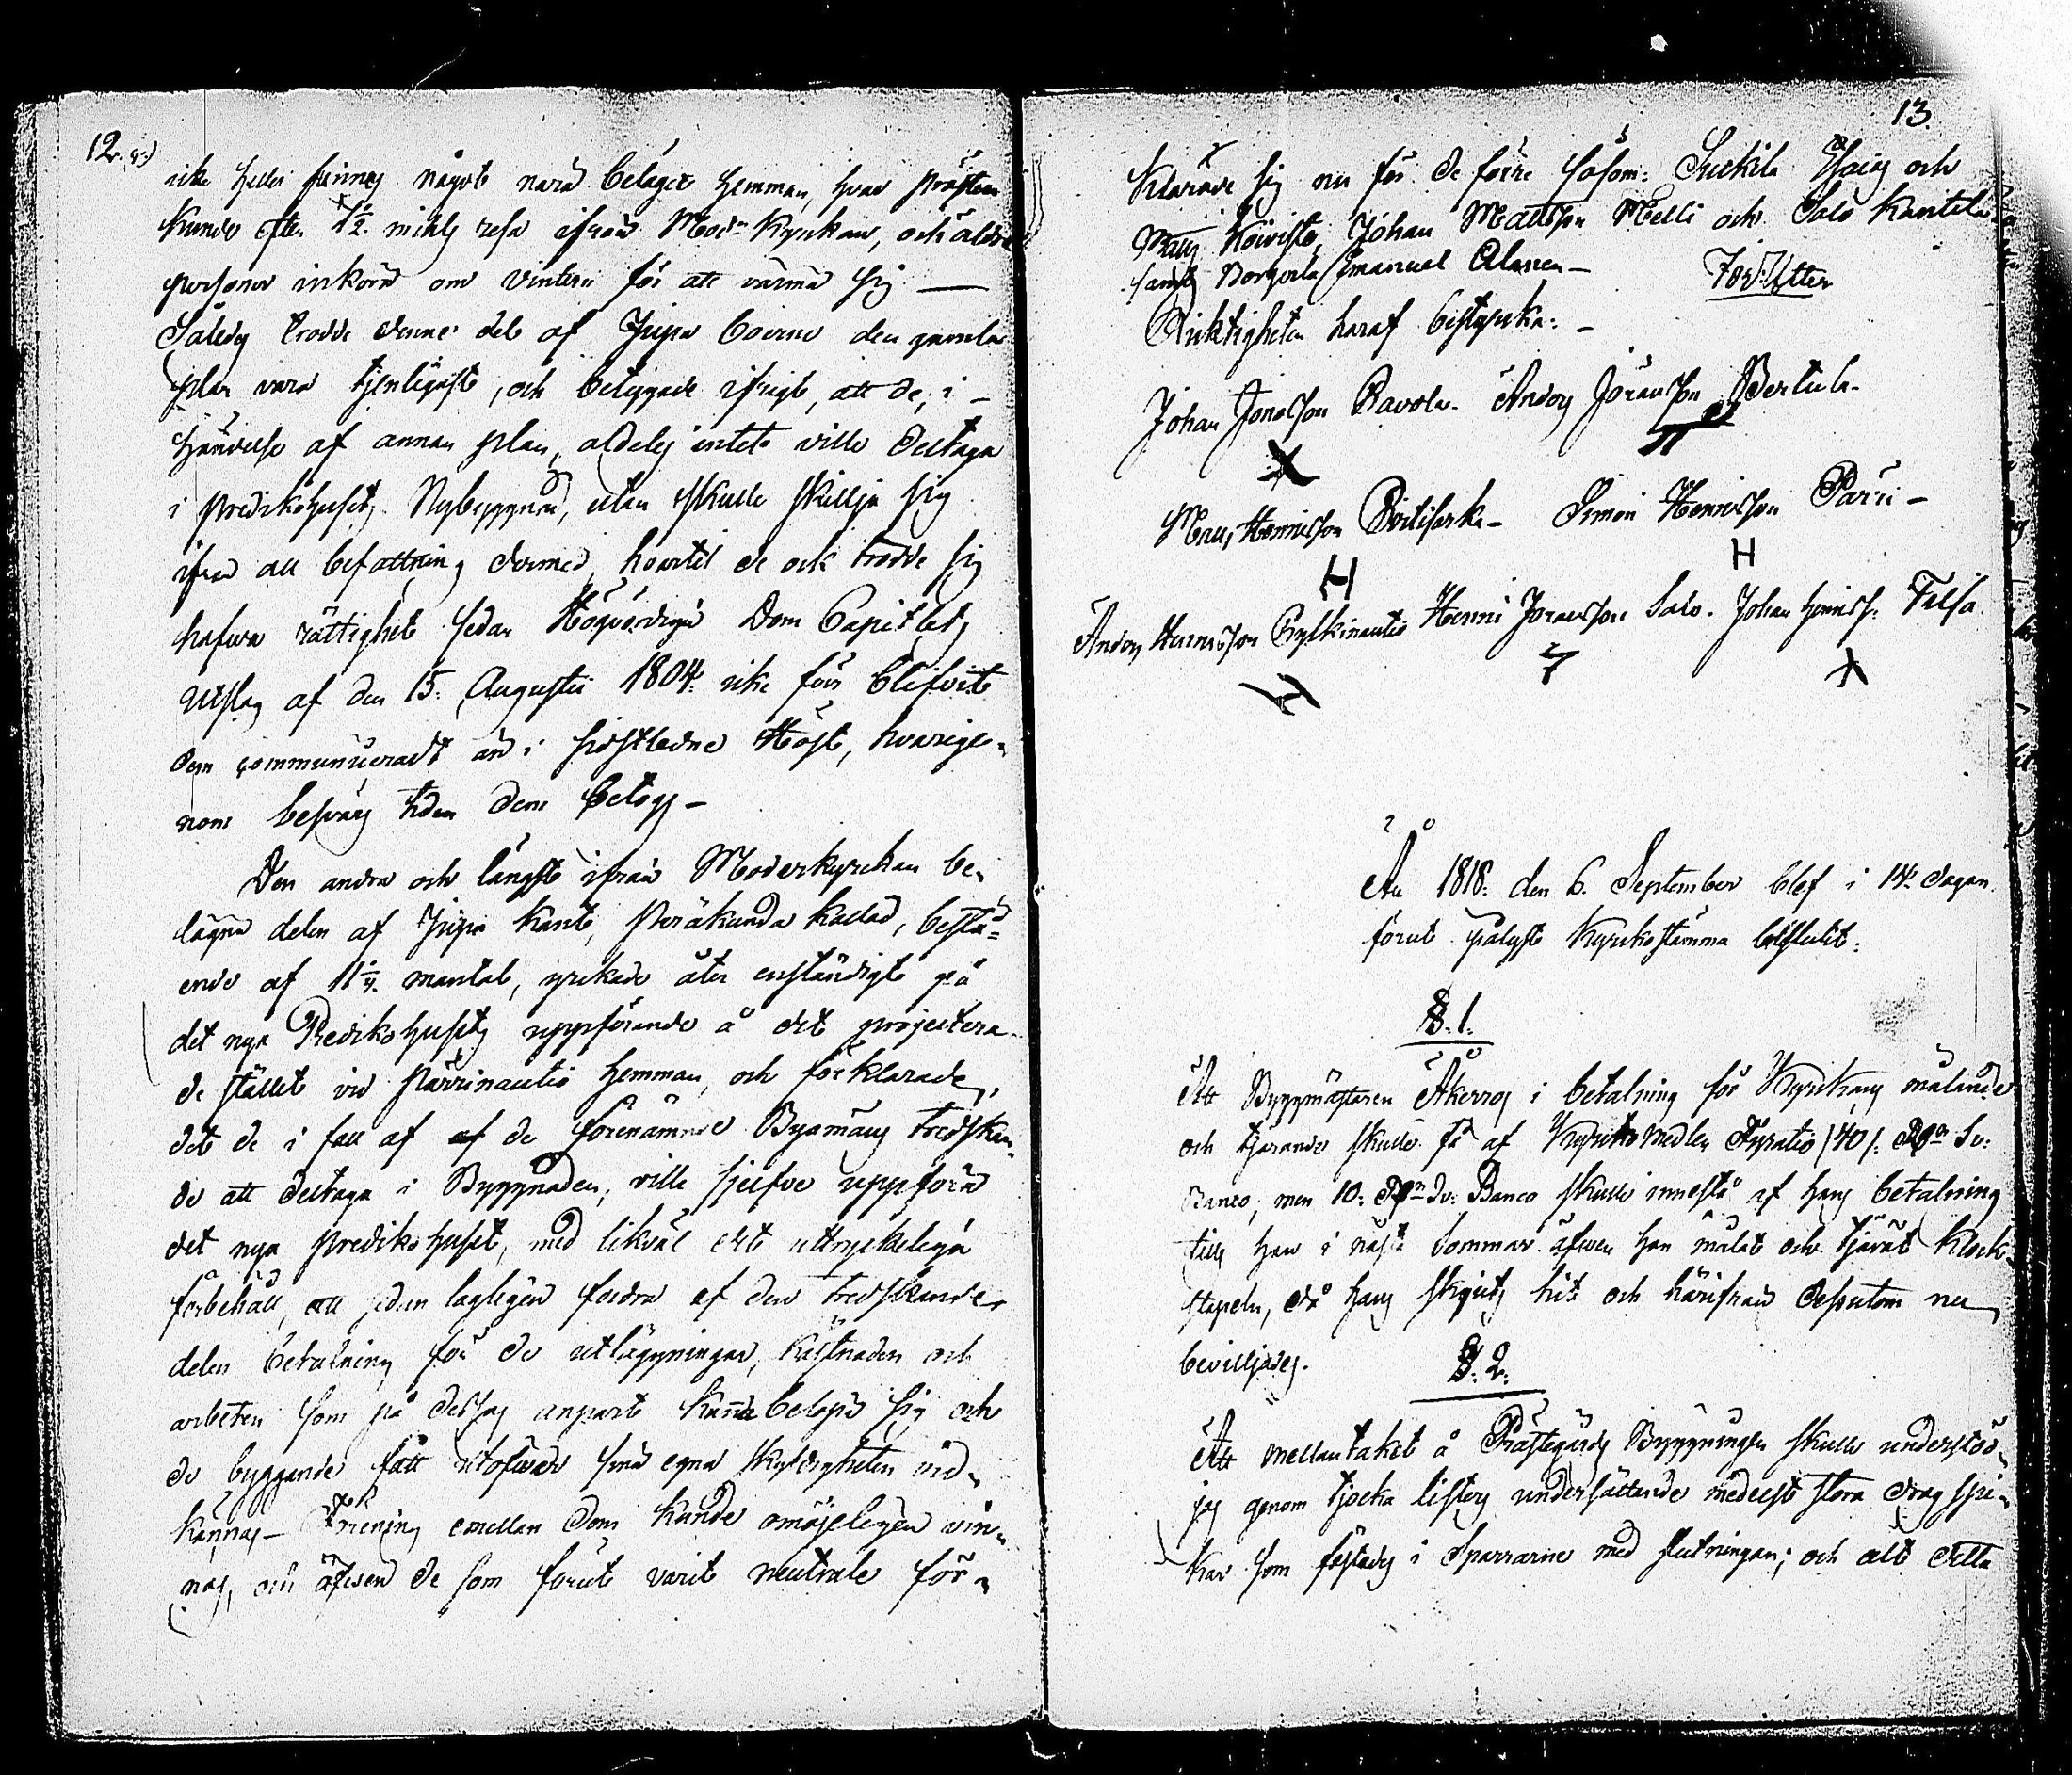 12.
icke heller finnes något nära beläget hemman, hvar Prästen
kunde efter 1½ mihls resa ifrån Moderkyrkan, och äldre
personer inköra om vintern för att värma sig —
Således trodde denne del af Jnpä boerne den gamla
plan vara tjenligaste, och betygade ifrigt, att de, i
händelse af annan plan, aldeles intet ville deltaga
i Predikohusets Nybyggnad, utan skulle skillja sig
ifrån all befattning dermed, hvartil de ock trodde sig
hafwa rättighet sedan Högvördiga Dom Capitlets
Utslag af den 15. Augusti 1804. icke förr blifvit
dem communiceradt än i sistledne Höst, hvarige-
nom besvärs tiden dem betogs —
Den andra och längst ifrån Moderkyrckan be-
lägna delen af kant, Peräkunda kallad, bestå-
ende af 11 mantal, yrckade åter enständigt på
det nya Predikohusets uppförande å det projectera-
de stället vid Pärrinautio hemman, och förklarade,
det de i fall af af de förenämnde Byamäns tredskan-
de att deltaga i Byggnaden, ville sjelfve uppföra
det nya Predikohuset, med likväl det uttryckeliga
förbehåll, att sedan lagligen fordra af den tredskande
delen betalning för de utläggningar, kostnaden och
arbeten som på dessas anpart kunde belöpa sig och
de byggande fått utöfwer sina egna skyldigheten vid-
kännas — Förening emellan dem kunde omöjeligen vin-
nas, och äfwen de som förut varit neutrale för-
13.
klarade sig nu för de förre såsom: Isaac och
Matts Koivisto, Johan Mattsson Melli och Salo Kantola
samt Borgoila Emanuel Alanen —
Riktigheten häraf bestyrka: —
Johan Jonasson Pavola. Anders Jöransson Pertula.
Matts Henricsson Simon Henricsson Parri —
H H
Anders Henricsson Pylkinautio Henric Jöransson Salo. Johan Henricss.
År 1818. den 6. September blef i 14. dagar
förut pålyst Kyrkostämma beslutit:
§. 1.
Att Byggmästaren Åkerros i betalning för Kyrckans målande
och tjärande skulle få af Kyrcko Medlen Fyratio /40/. Rd Sv:
Banco, men 10: Rd Sv: Banco skulle innestå af hans betalning
tills han i nästa Sommar äfwen han målat och tjärat Klock-
stapeln, då hans skjuts hit och härifrån dessutom nu
bevilljades.
§. 2.
Att mellantaket å Prästegårds Byggningen skulle understöd-
jas genom tjocka listers undersättande medelst stora drag spi-
kar som fästades i Sparrarne med slutningar; och allt detta